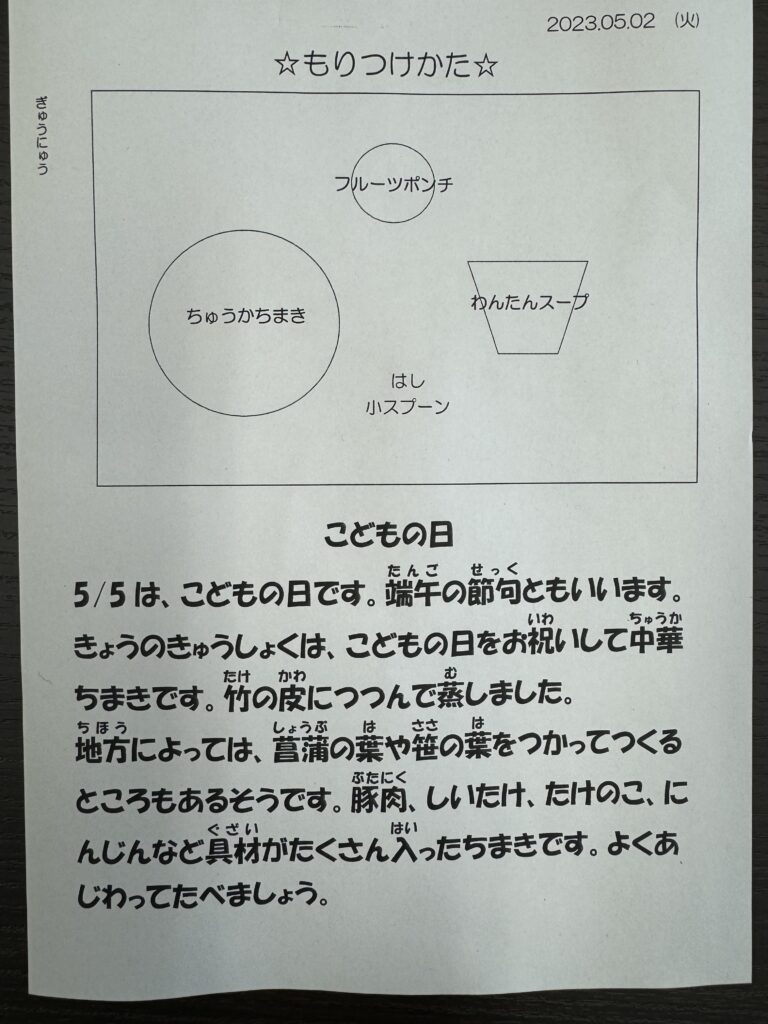 2023.05.02 (火)
☆もりつけかた☆
ぎゅうにゅう
フルーツポンチ
ちゅうかちまき
わんたんスープ
はし
小スプーン
こどもの日
たんご せっく
5/5は、こどもの日です。端午の節句ともいいます。
いわ ちゅうか
きょうのきゅうしょくは、こどもの日をお祝いして中華
たけ かわ む
ちまきです。竹の皮につつんで蒸しました。
ちほう しょうぶ は ささ は
地方によっては、菖蒲の葉や笹の葉をつかってつくる
ぶたにく
ところもあるそうです。豚肉、しいたけ、たけのこ、に
ぐざい はい
んじんなど具材がたくさん入ったちまきです。よくあ
じわってたべましょう。